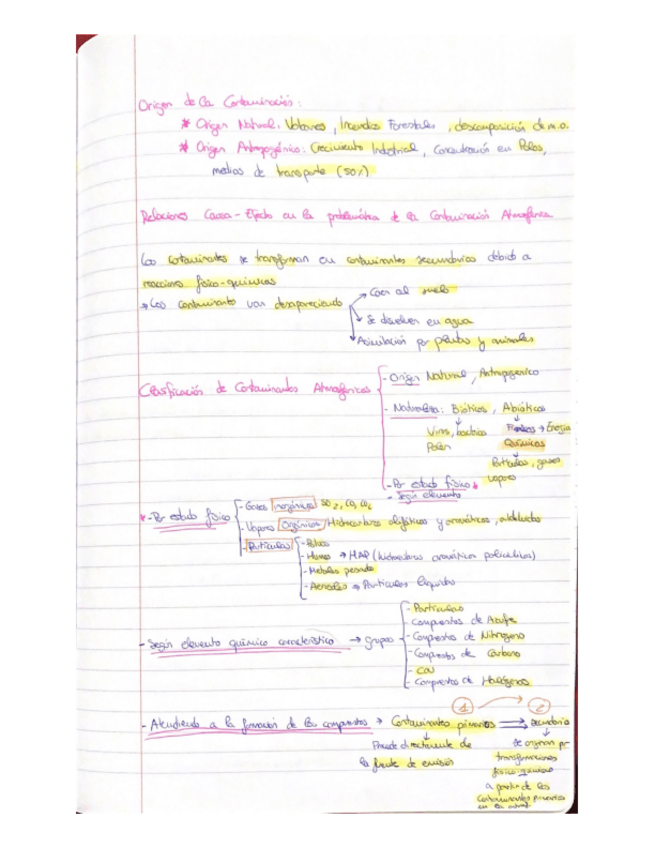 Origen de la Contaminación:
* Origen Natural: Volcanes, Incendios Forestales, descomposición de m.o.
* Origen Antropogénico: Crecimiento Industrial, Concentración en Polos,
medios de transporte (50%)
Relaciones Causa-Efecto en la problemática de la Contaminación Atmosférica
Los contaminantes se transforman en contaminantes secundarios debido a
reacciones físico-químicas
→ Los contaminantes van desapareciendo
→ Caen al suelo
→ Se disuelven en agua
→ Asimilación por plantas y animales
Clasificación de Contaminantes Atmosféricos
- Origen Natural, Antropogénico
- Naturaleza: Bióticos, Abióticos
Virus, bacterias
Polen
Físicos → Energía
Químicos
Partículas, gases
vapores
- Por estado físico *
- Según elemento
* - Por estado físico
- Gases inorgánicos SO2, CO, CO2
- Vapores Orgánicos Hidrocarburos alifáticos y aromáticos, aldehidos
- Partículas
- Polvos
- Humos → HAP (hidrocarburos aromáticos policíclicos)
- Metales pesados
- Aerosoles → Partículas líquidas
- Según elemento químico característico → grupos
- Partículas
- Compuestos de Azufre
- Compuestos de Nitrógeno
- Compuestos de Carbono
- COV
- Compuestos de Halógenos
1 2
- Atendiendo a la formación de los compuestos → Contaminantes primarios → secundarios
Procede directamente de
la fuente de emisión
Se originan por
transformaciones
físico-químicas
a partir de los
Contaminantes primarios
en la atmosf.